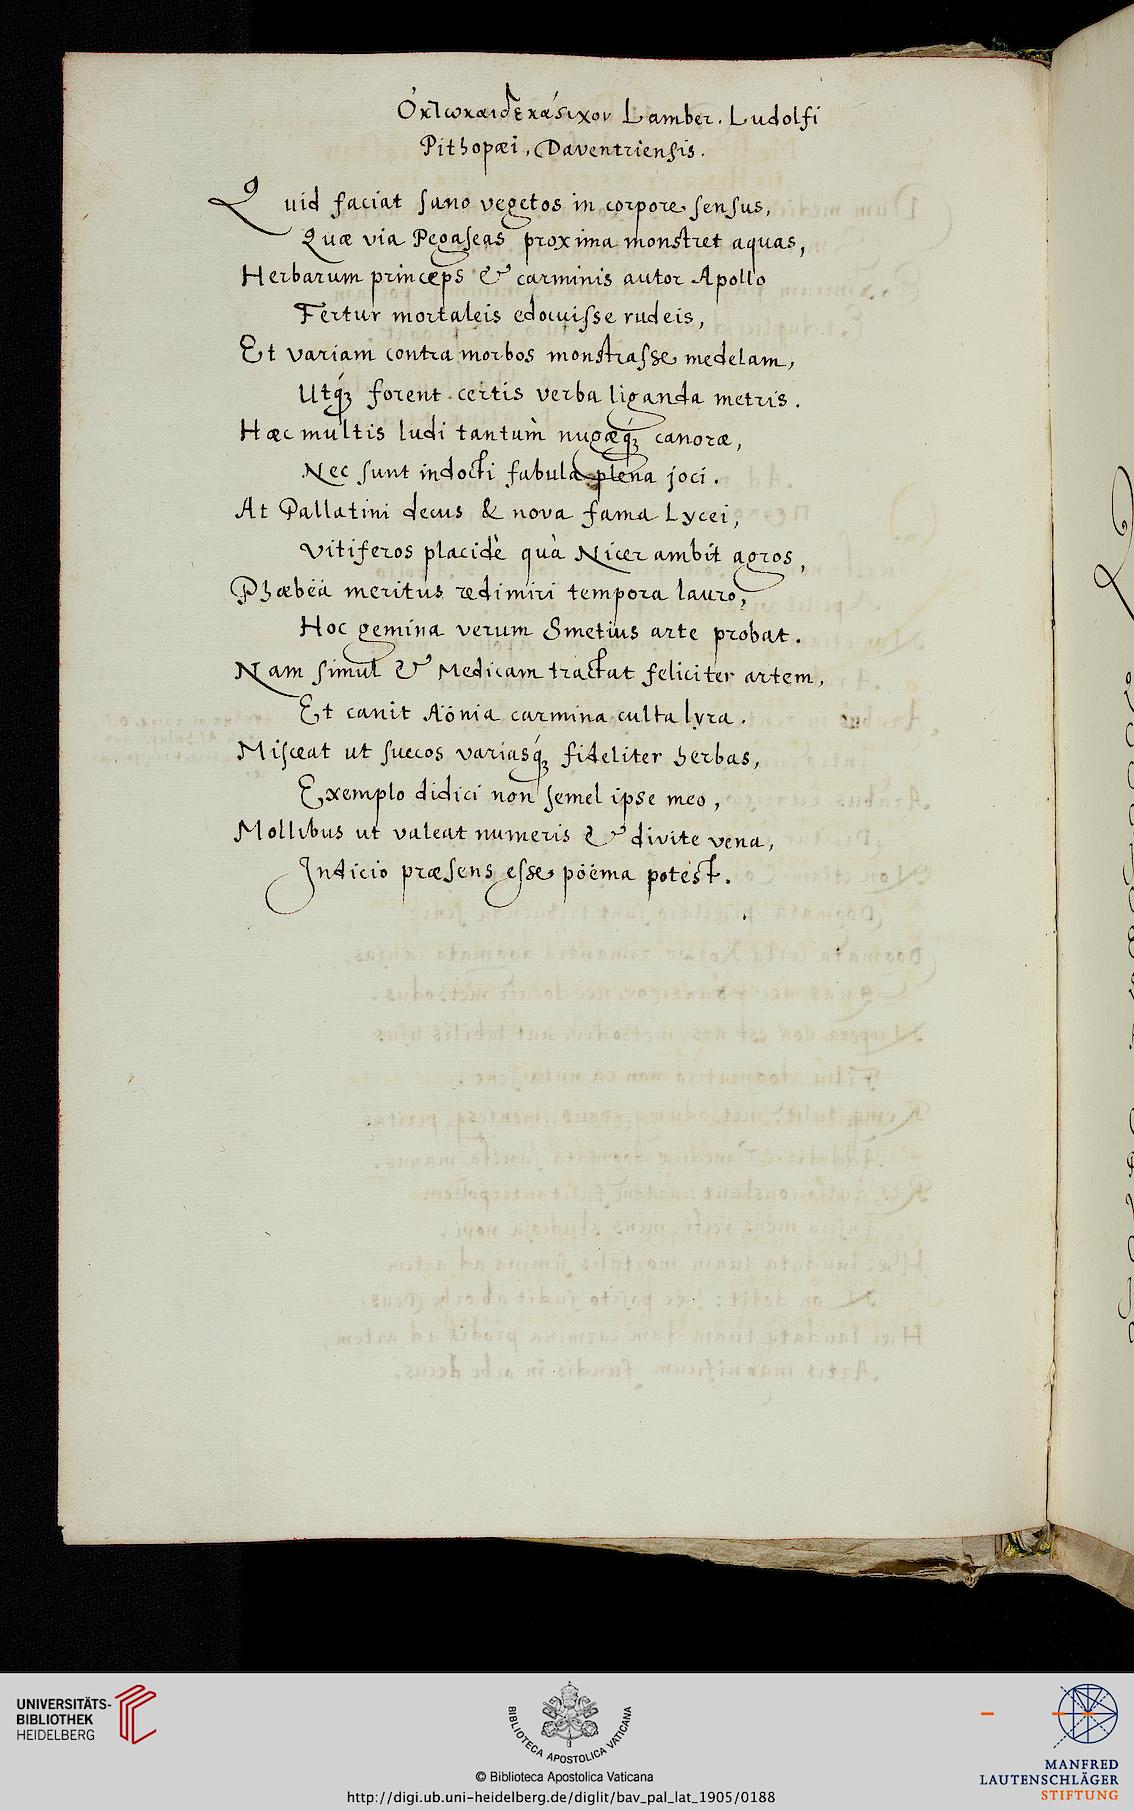 Ὀκτωκαιδεκάστιχον Lamber. Ludolfi
Pithopæi, Daventriensis.
Quid faciat sano vegetos in corpore sensus,
Quæ via Pegaseas proxima monstret aquas,
Herbarum princeps & carminis autor Apollo
Fertur mortaleis edocuisse rudeis,
Et variam contra morbos monstrasse medelam,
Utq́ꝫ forent certis verba liganda metris.
Hæc multis ludi tantum̀ nugæq́ꝫ canoræ,
Nec sunt indocti fabula plena joci.
At Pallatini decus & nova fama Lycei,
Vitiferos placidè quà Nicer ambit agros,
Phæbëa meritus redimiri tempora lauro,
Hoc gemina verum Smetius arte probat.
Nam simul & Medicam tractat feliciter artem,
Et canit Aönia carmina culta lyra.
Misceat ut succos variasq́ꝫ fideliter herbas,
Exemplo didici non semel ipse meo,
Mollibus ut valeat numeris & divite vena,
Indicio præsens esse poëma potest.
UNIVERSITÄTS-
BIBLIOTHEK
HEIDELBERG
BIBLIOTECA APOSTOLICA VATICANA
© Biblioteca Apostolica Vaticana
http://digi.ub.uni-heidelberg.de/diglit/bav_pal_lat_1905/0188
MANFRED
LAUTENSCHLÄGER
STIFTUNG